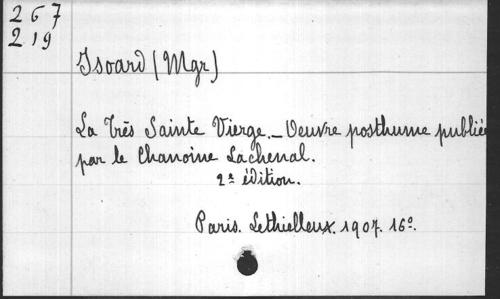 267
219
Isoard (Mgr)
La Très Sainte Vierge._ Oeuvre posthume publiée
par le Chanoine Lachenal.
2e édition.
Paris. Lethielleux. 1907. 16°.